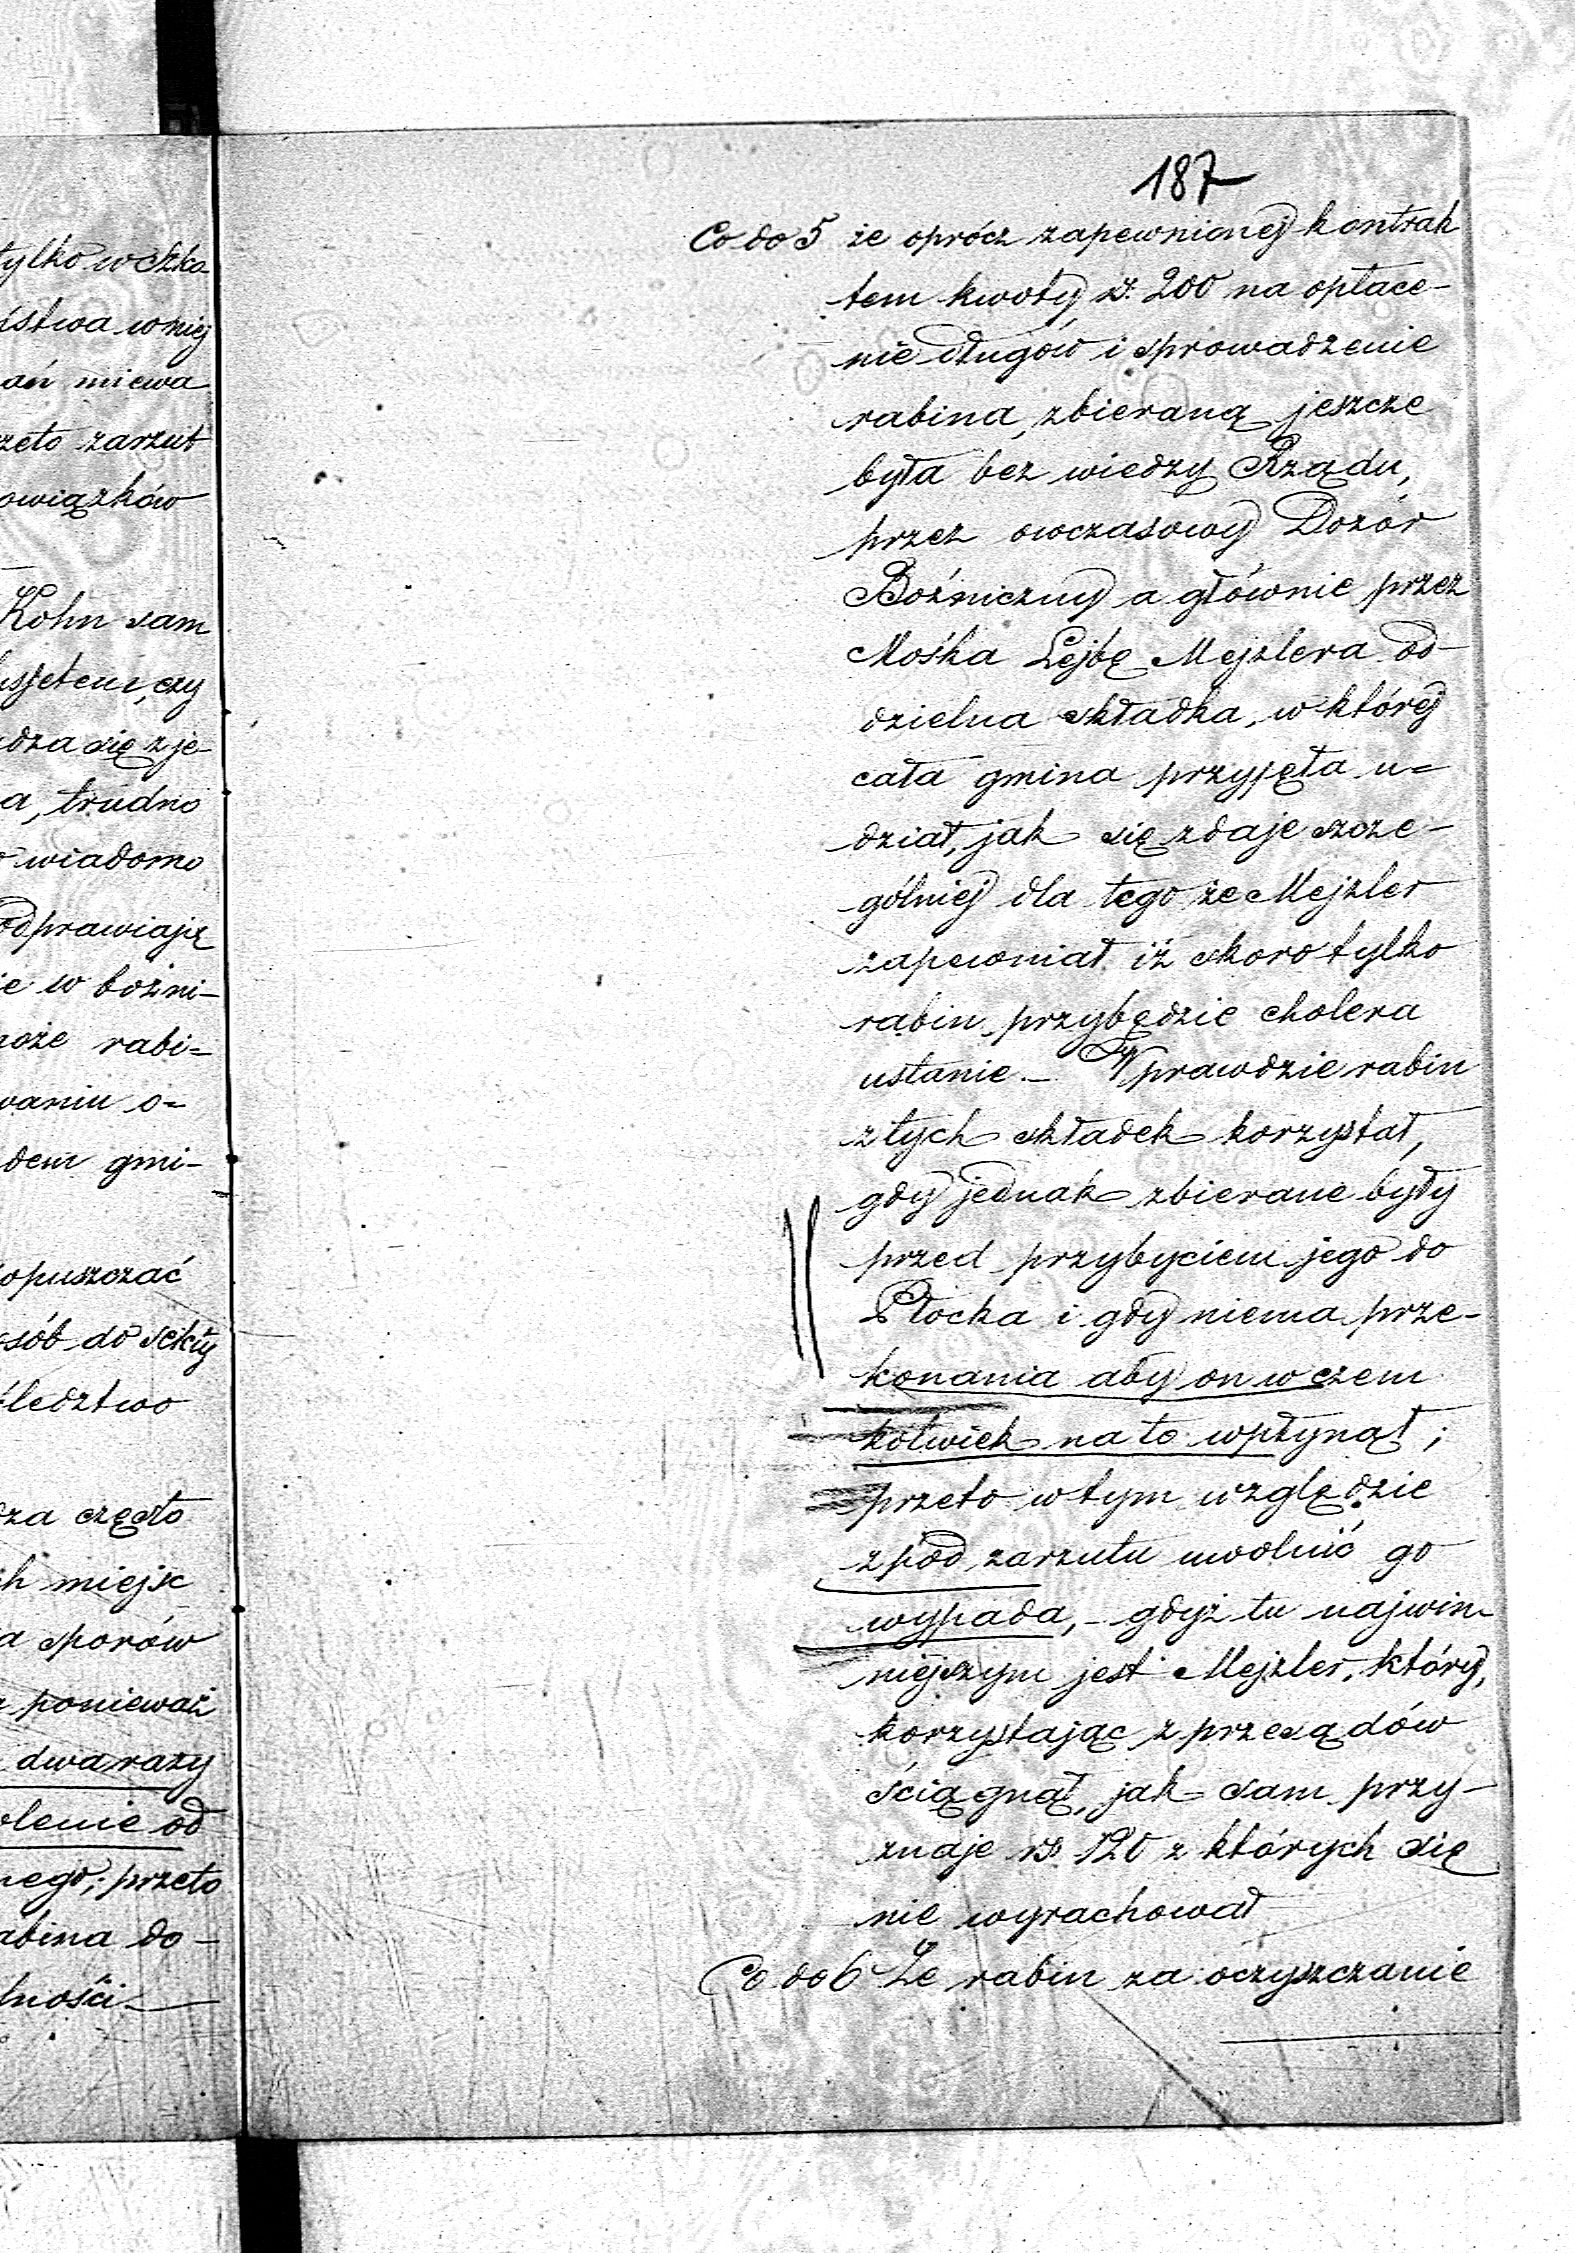 tylko w szko
ństwa w niej
ań miewa
rzeto zarzut
owiązków
Kohn sam
czy
dza się z je-
a, trudno
o wiadomo
odprawiają
ie w bożni-
może rabi=
waniu o=
dem gmi-
opuszczać
osób do sekty
śledztwo
dza często
ch miejsc
a sporów
ponieważ
dwa razy
olenie od
nego; przeto
abina do-
lności
187
Co do 5 że oprócz zapewnionej kontrak
tem kwoty rs. 200 na opłace-
nie długów i sprowadzenie
rabina, zbieraną jeszcze
była bez wiedzy Rządu,
przez owczasowy Dozór
Bóźniczny a głównie przez
Mośka Lejbę Mejzlera od-
dzielna składka, w której
cała gmina przyjęła u=
dział, jak się zdaje szcze-
gólniej dla tego że Mejzler
zapewniał iż skoro tylko
rabin przybędzie cholera
ustanie. – Wprawdzie rabin
z tych składek korzystał,
gdy jednak zbierane były
przed przybyciem jego do
Płocka i gdy niema prze-
konania aby on w czem
kolwiek na to wpłynął;
przeto w tym względzie
z pod zarzutu uwolnić go
wypada, – gdyż tu najwin-
niejszym jest Mejzler, który,
korzystając z przesądów
ściągnął, jak sam przy-
znaje rs. 120 z których się
nie wyrachował
Co do 6 Że rabin za oczyszczanie